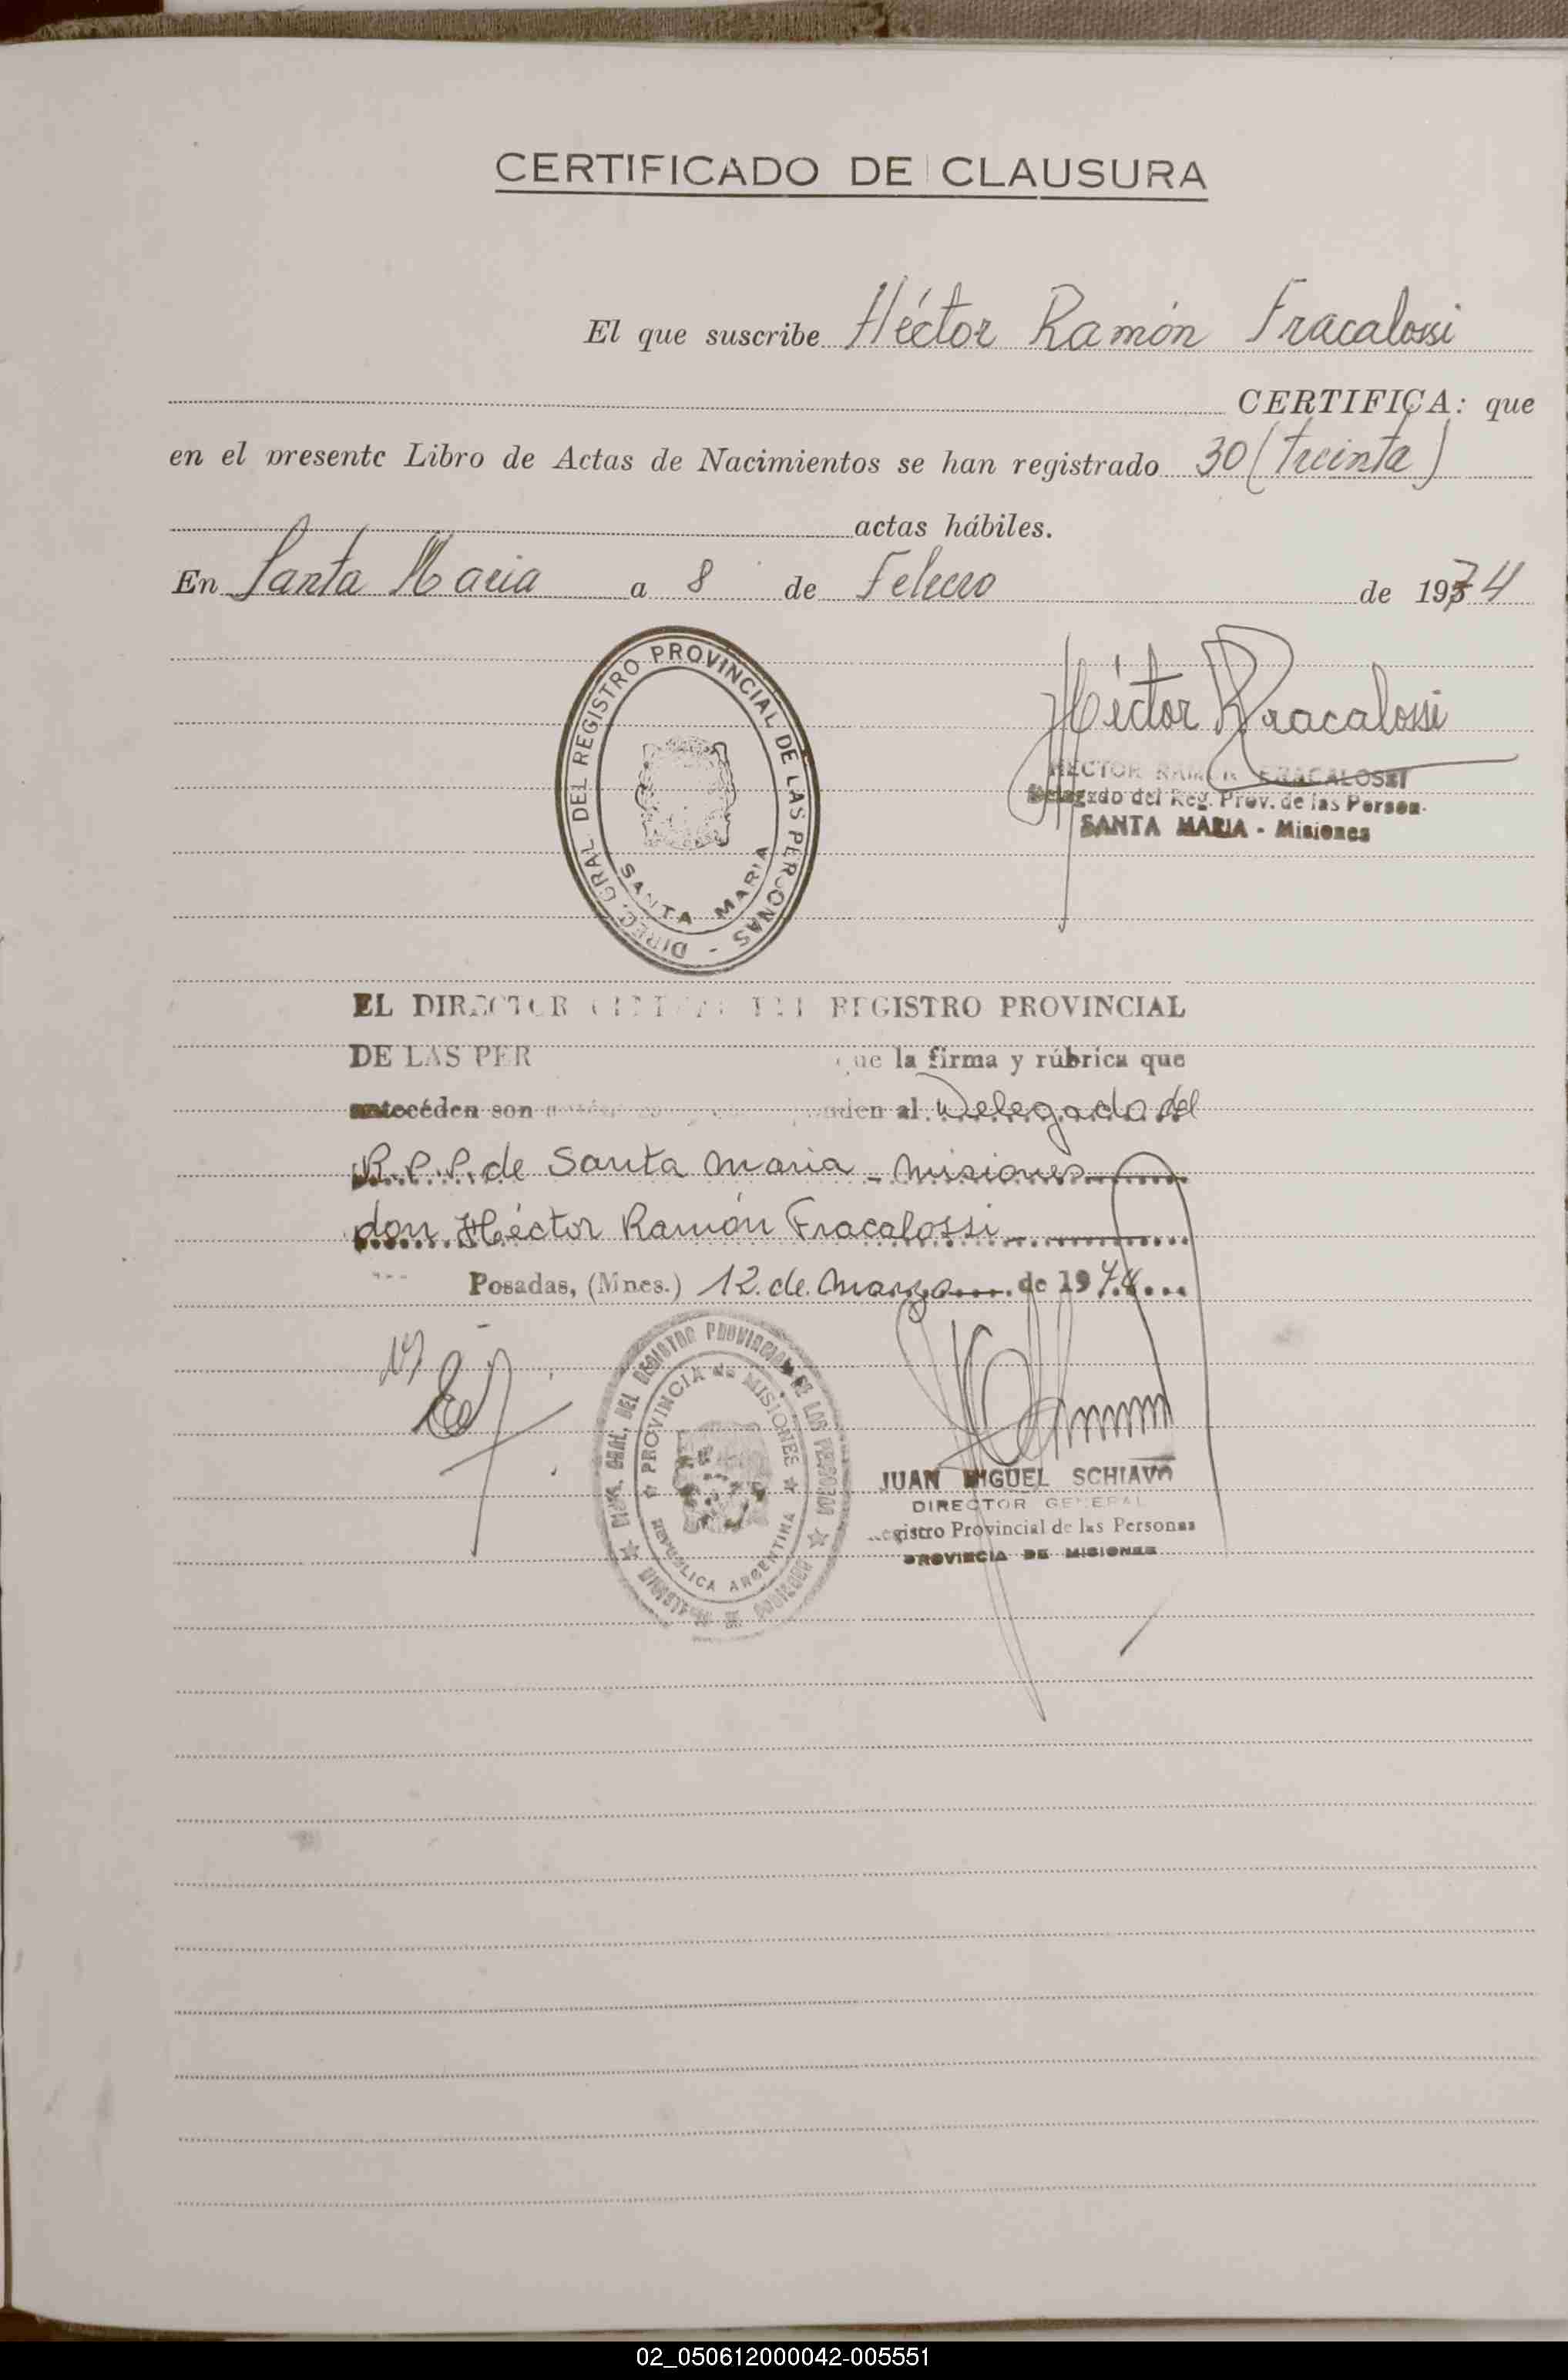 CERTIFICADO DE CLAUSURA
El que suscribe Héctor Ramón Fracalossi
CERTIFICA: que
en el presente Libro de Actas de Nacimientos se han registrado 30 (treinta)
actas hábiles.
En Santa Maria a 8 de Febrero de 1974
DIREC. GRAL. DEL REGISTRO PROVINCIAL DE LAS PERSONAS -
SANTA MARIA
Héctor R Fracalossi
HECTOR RAMON FRACALOSSI
Delegado del Reg. Prov. de las Person.
SANTA MARIA - Misiones
EL DIRECTOR GENERAL DEL REGISTRO PROVINCIAL
DE LAS PER que la firma y rúbrica que
antecéden son al Delegado del
R.P.P. de Santa Maria - Misiones
don Héctor Ramón Fracalossi
Posadas, (Mnes.) 12 de Marzo de 1974
DIREC. GRAL. DEL REGISTRO PROVINCIAL DE LAS PERSONAS
PROVINCIA de MISIONES
REPUBLICA ARGENTINA
MINISTERIO DE GOBIERNO
JUAN MIGUEL SCHIAVO
DIRECTOR GENERAL
egistro Provincial de las Personas
PROVINCIA DE MISIONES
02_050612000042-005551